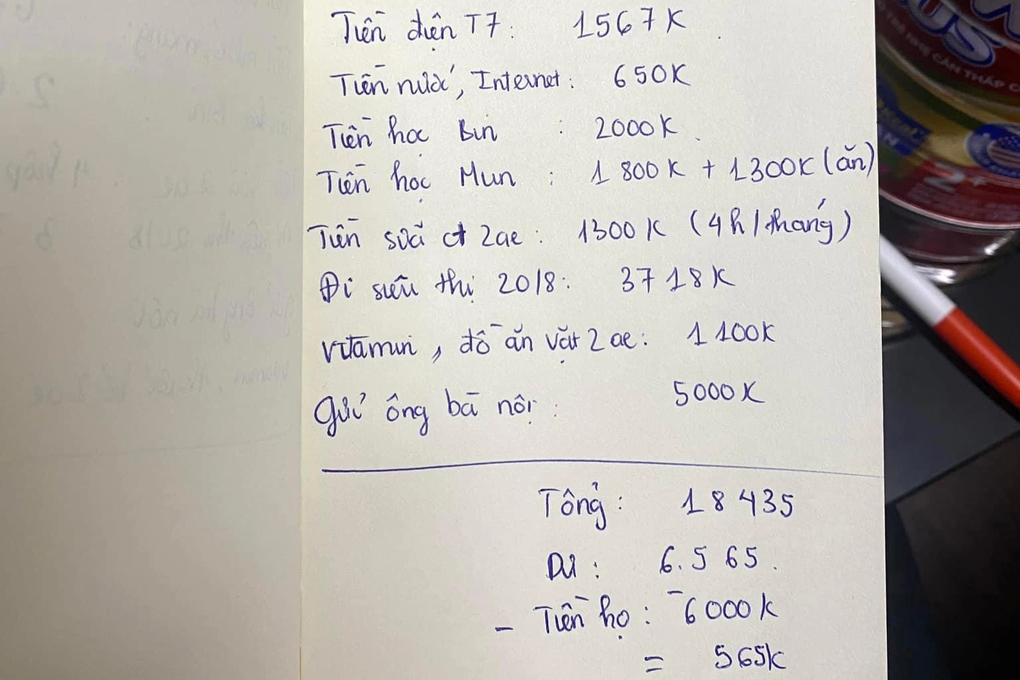 Tiền điện T7: 1567K.
Tiền nước, Internet: 650K
Tiền học Bin : 2000K.
Tiền học Mun : 1 800K + 1300K (ăn)
Tiền sữa 2ae: 1300K (4h/tháng)
Đi siêu thị 20/8: 3718K
Vitamin, đồ ăn vặt 2 ae: 1 100K
Gửi ông bà nội: 5000K
Tổng: 18 435
Dư: 6.565.
- Tiền họ: -6000K
= 565k
US
CĂN THẤP C
2+